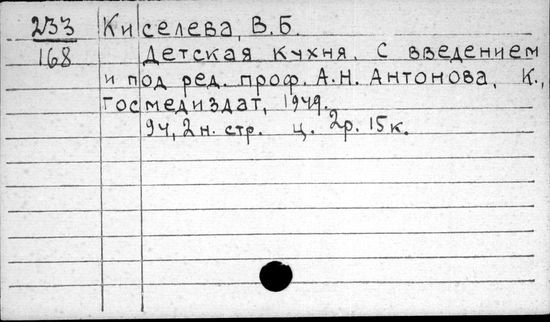 233 Киселева, В.Б.
168 Детская кухня. С введением
и под ред. проф. А.Н. Антонова, К.,
Госмедиздат, 1949.
94, 2 н. стр. ц. 2р. 15к.